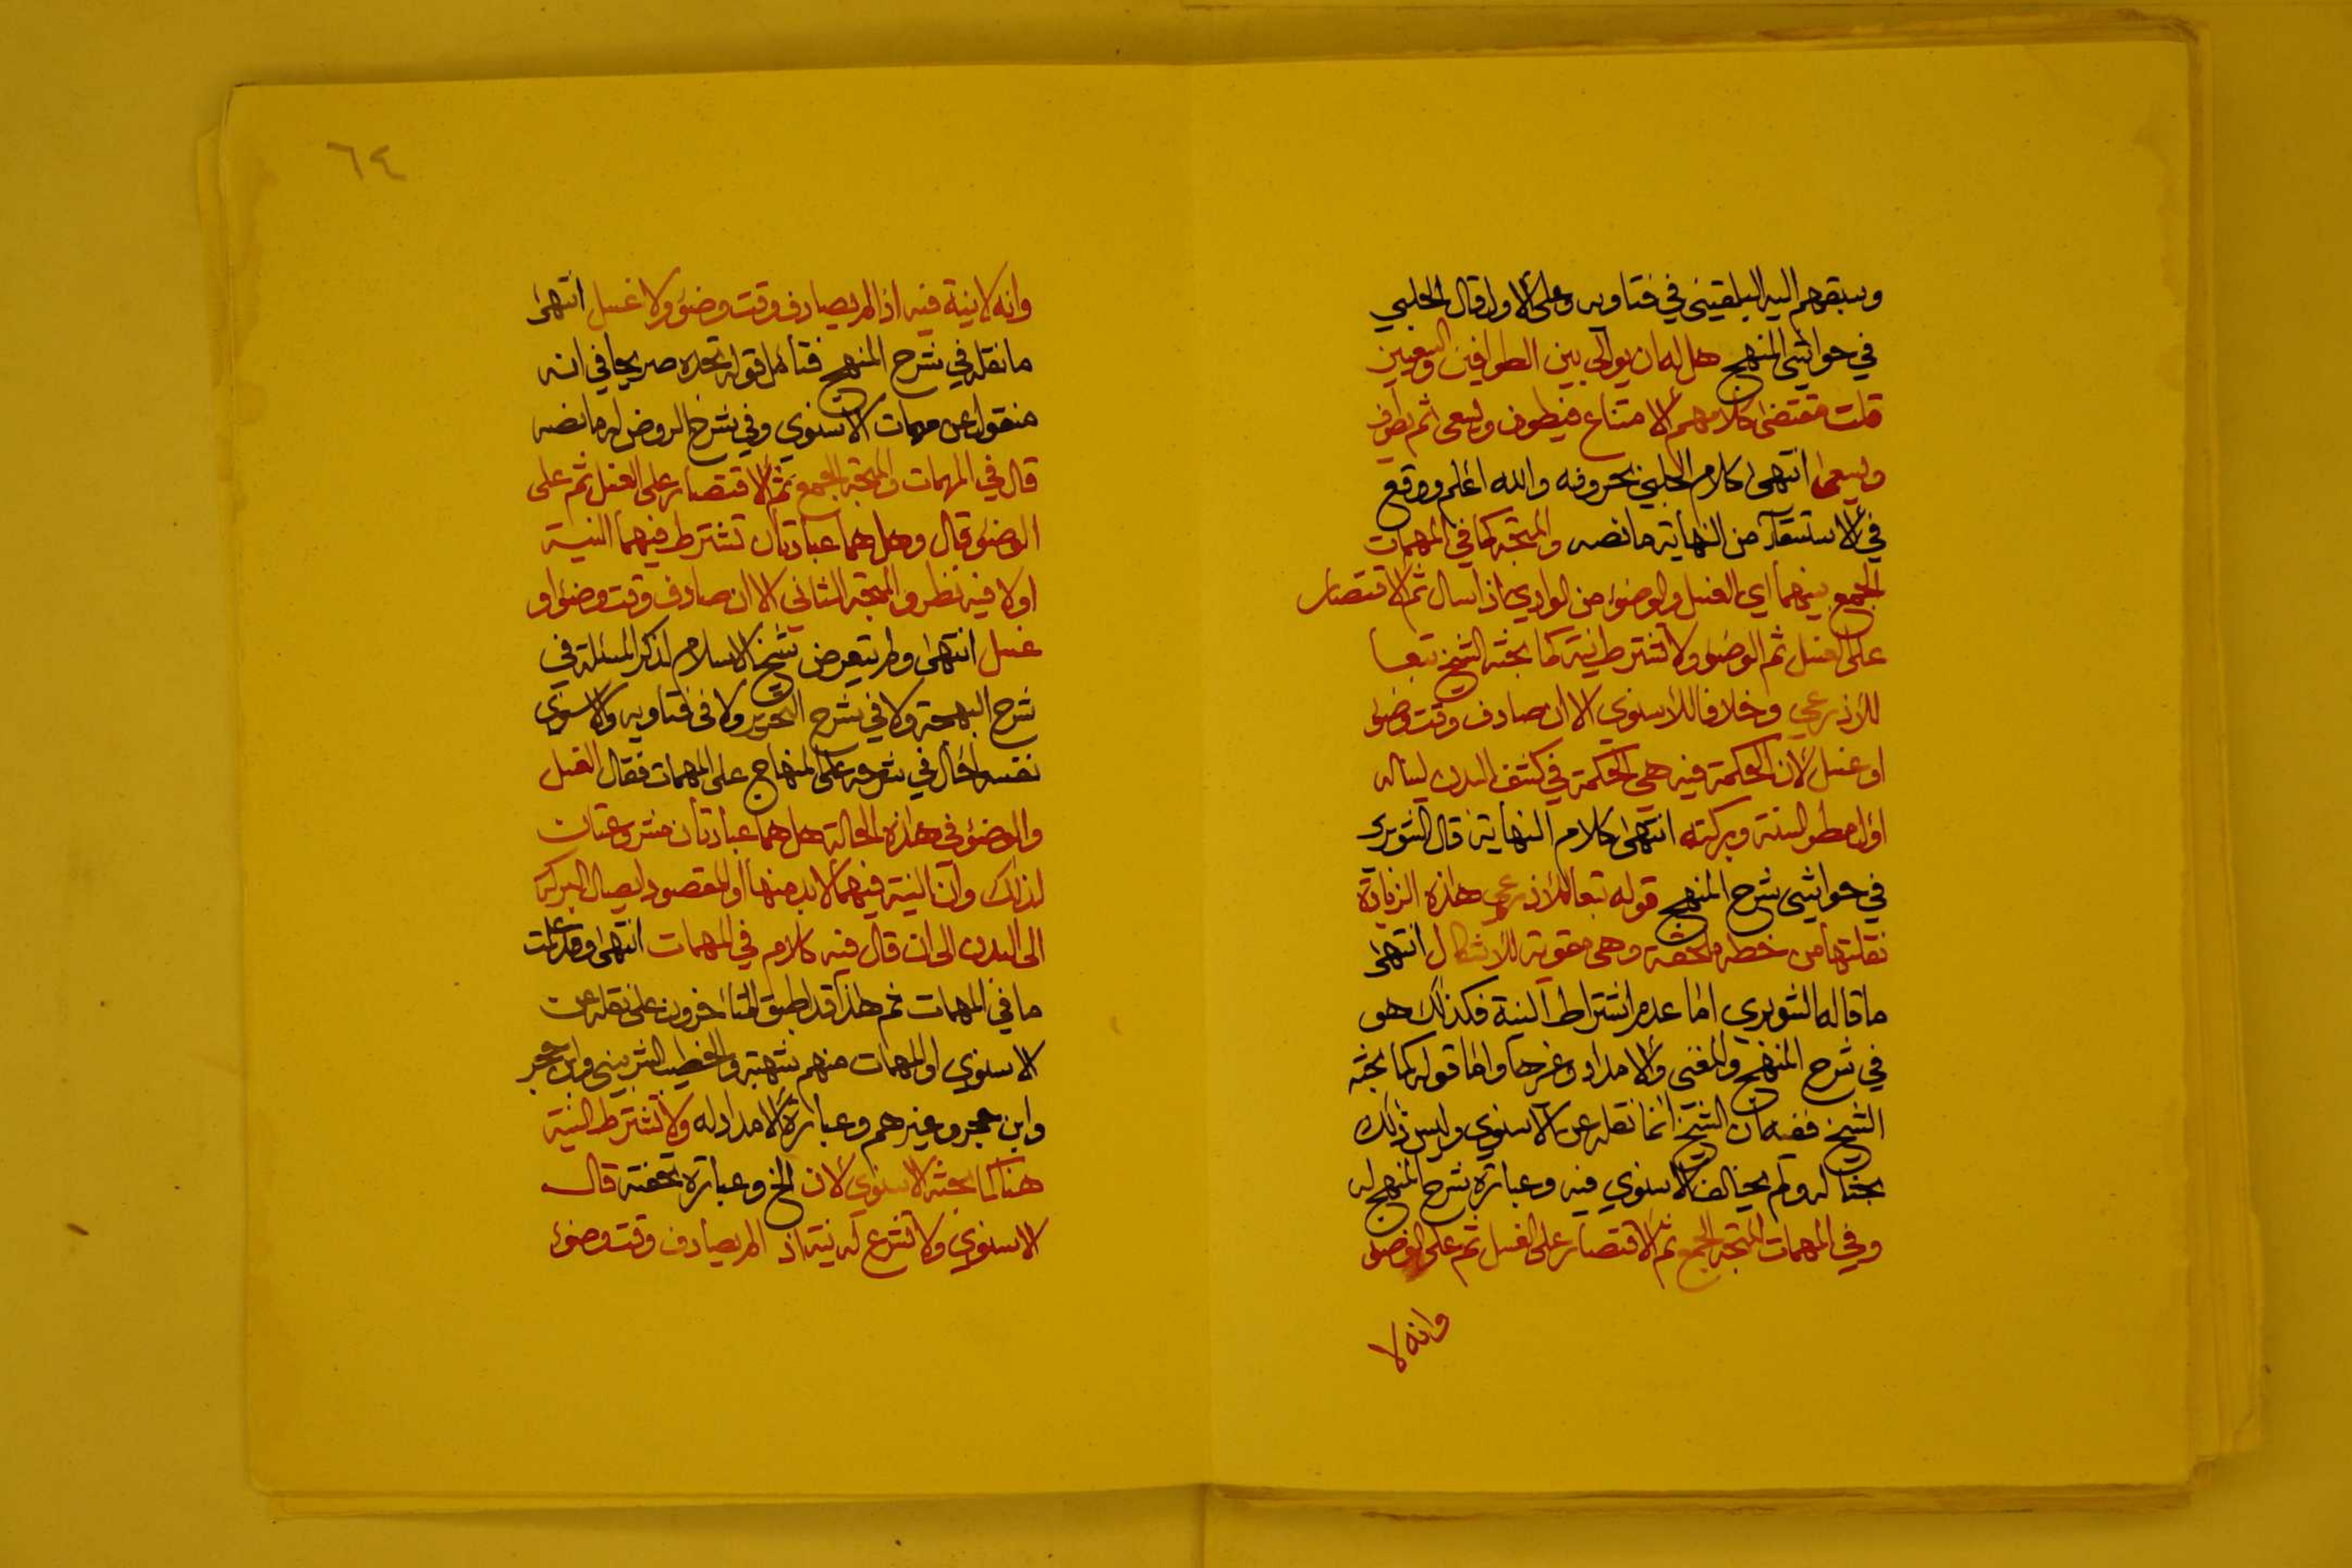 وسبقهم اليه البلقيني في فتاويه وعلى الاول قال الحلبي
في حواشي المنهج هل له ان يوالي بين الطوافين والسعيين
قلت مقتضى كلامهم الامتناع فيطوف ويسعى ثم يطوف
ويسعى انتهى كلام الحلبي بحروفه والله اعلم ووقع
في الاستسقاء من النهاية ما نصه والمتجه كما في المهمات
الجمع بينهما اي الغسل والوضوء من الوادي اذا سال ثم الاقتصار
على الغسل ثم الوضوء ولا تشترط نية كما بحثه الشيخ تبعا
للاذرعي وخلافا للاسنوي الا ان صادف وقت وضوء
او غسل لان الحكمة فيه هي الحكمة في كشف البدن ليناله
اول مطر السنة وبركته انتهى كلام النهاية قال الشوبري
في حواشي شرح المنهج قوله تبعا للاذرعي هاذه الزيادة
نقلتها من خطه ملحقة وهي مقوية للاشكال انتهى
ما قاله الشوبري اما عدم اشتراط النية فكذلك هو
في شرح المنهج والمغني والامداد وغيرها واما قوله كما بحثه
الشيخ ففيه ان الشيخ انما نقله عن الاسنوي وليس ذلك
بحثا له ولم يخالف الاسنوي فيه وعبارة شرح المنهج له
وفي المهمات المتجه الجمع ثم الاقتصار على الغسل ثم على الوضوء
وانه لا
٦٤
وانه لا نية فيه اذا لم يصادف وقت وضوء ولا غسل انتهى
ما نقله في شرح المنهج فتأمل قوله تجده صريحا في انه
منقول عن مهمات الاسنوي وفي شرح الروض له ما نصه
قال في المهمات والمتجه الجمع ثم الاقتصار على الغسل ثم على
الوضوء قال وهل هما عبادتان تشترط فيهما النية
اولا فيه نظر والمتجه الثاني الا ان صادف وقت وضوء او
غسل انتهى ولم يتعرض شيخ الاسلام لذكر المسئلة في
شرح البهجة ولا في شرح التحرير ولا في فتاويه والاسنوي
نفسه احال في شرحه على المنهاج على المهمات فقال الغسل
والوضوء في هاذه الحالة هل هما عبادتان مشروعتان
لذلك وان النية فيهما لا بد منها او المقصود ايصال البركة
الى البدن الى ان قال فيه كلام في المهمات انتهى وقد علمت
ما في المهمات ثم هذا قد اطبق المتأخرون على نقله عن
الاسنوي او المهمات منهم شهبة والخطيب الشربيني وابن حجر
وابن حجر وغيرهم وعبارة الامداد له ولا تشترط النية
هنا كما بحثه الاسنوي لان الخ وعبارة تحفته قال
الاسنوي ولا تشرع له نية اذا لم يصادف وقت وضوء